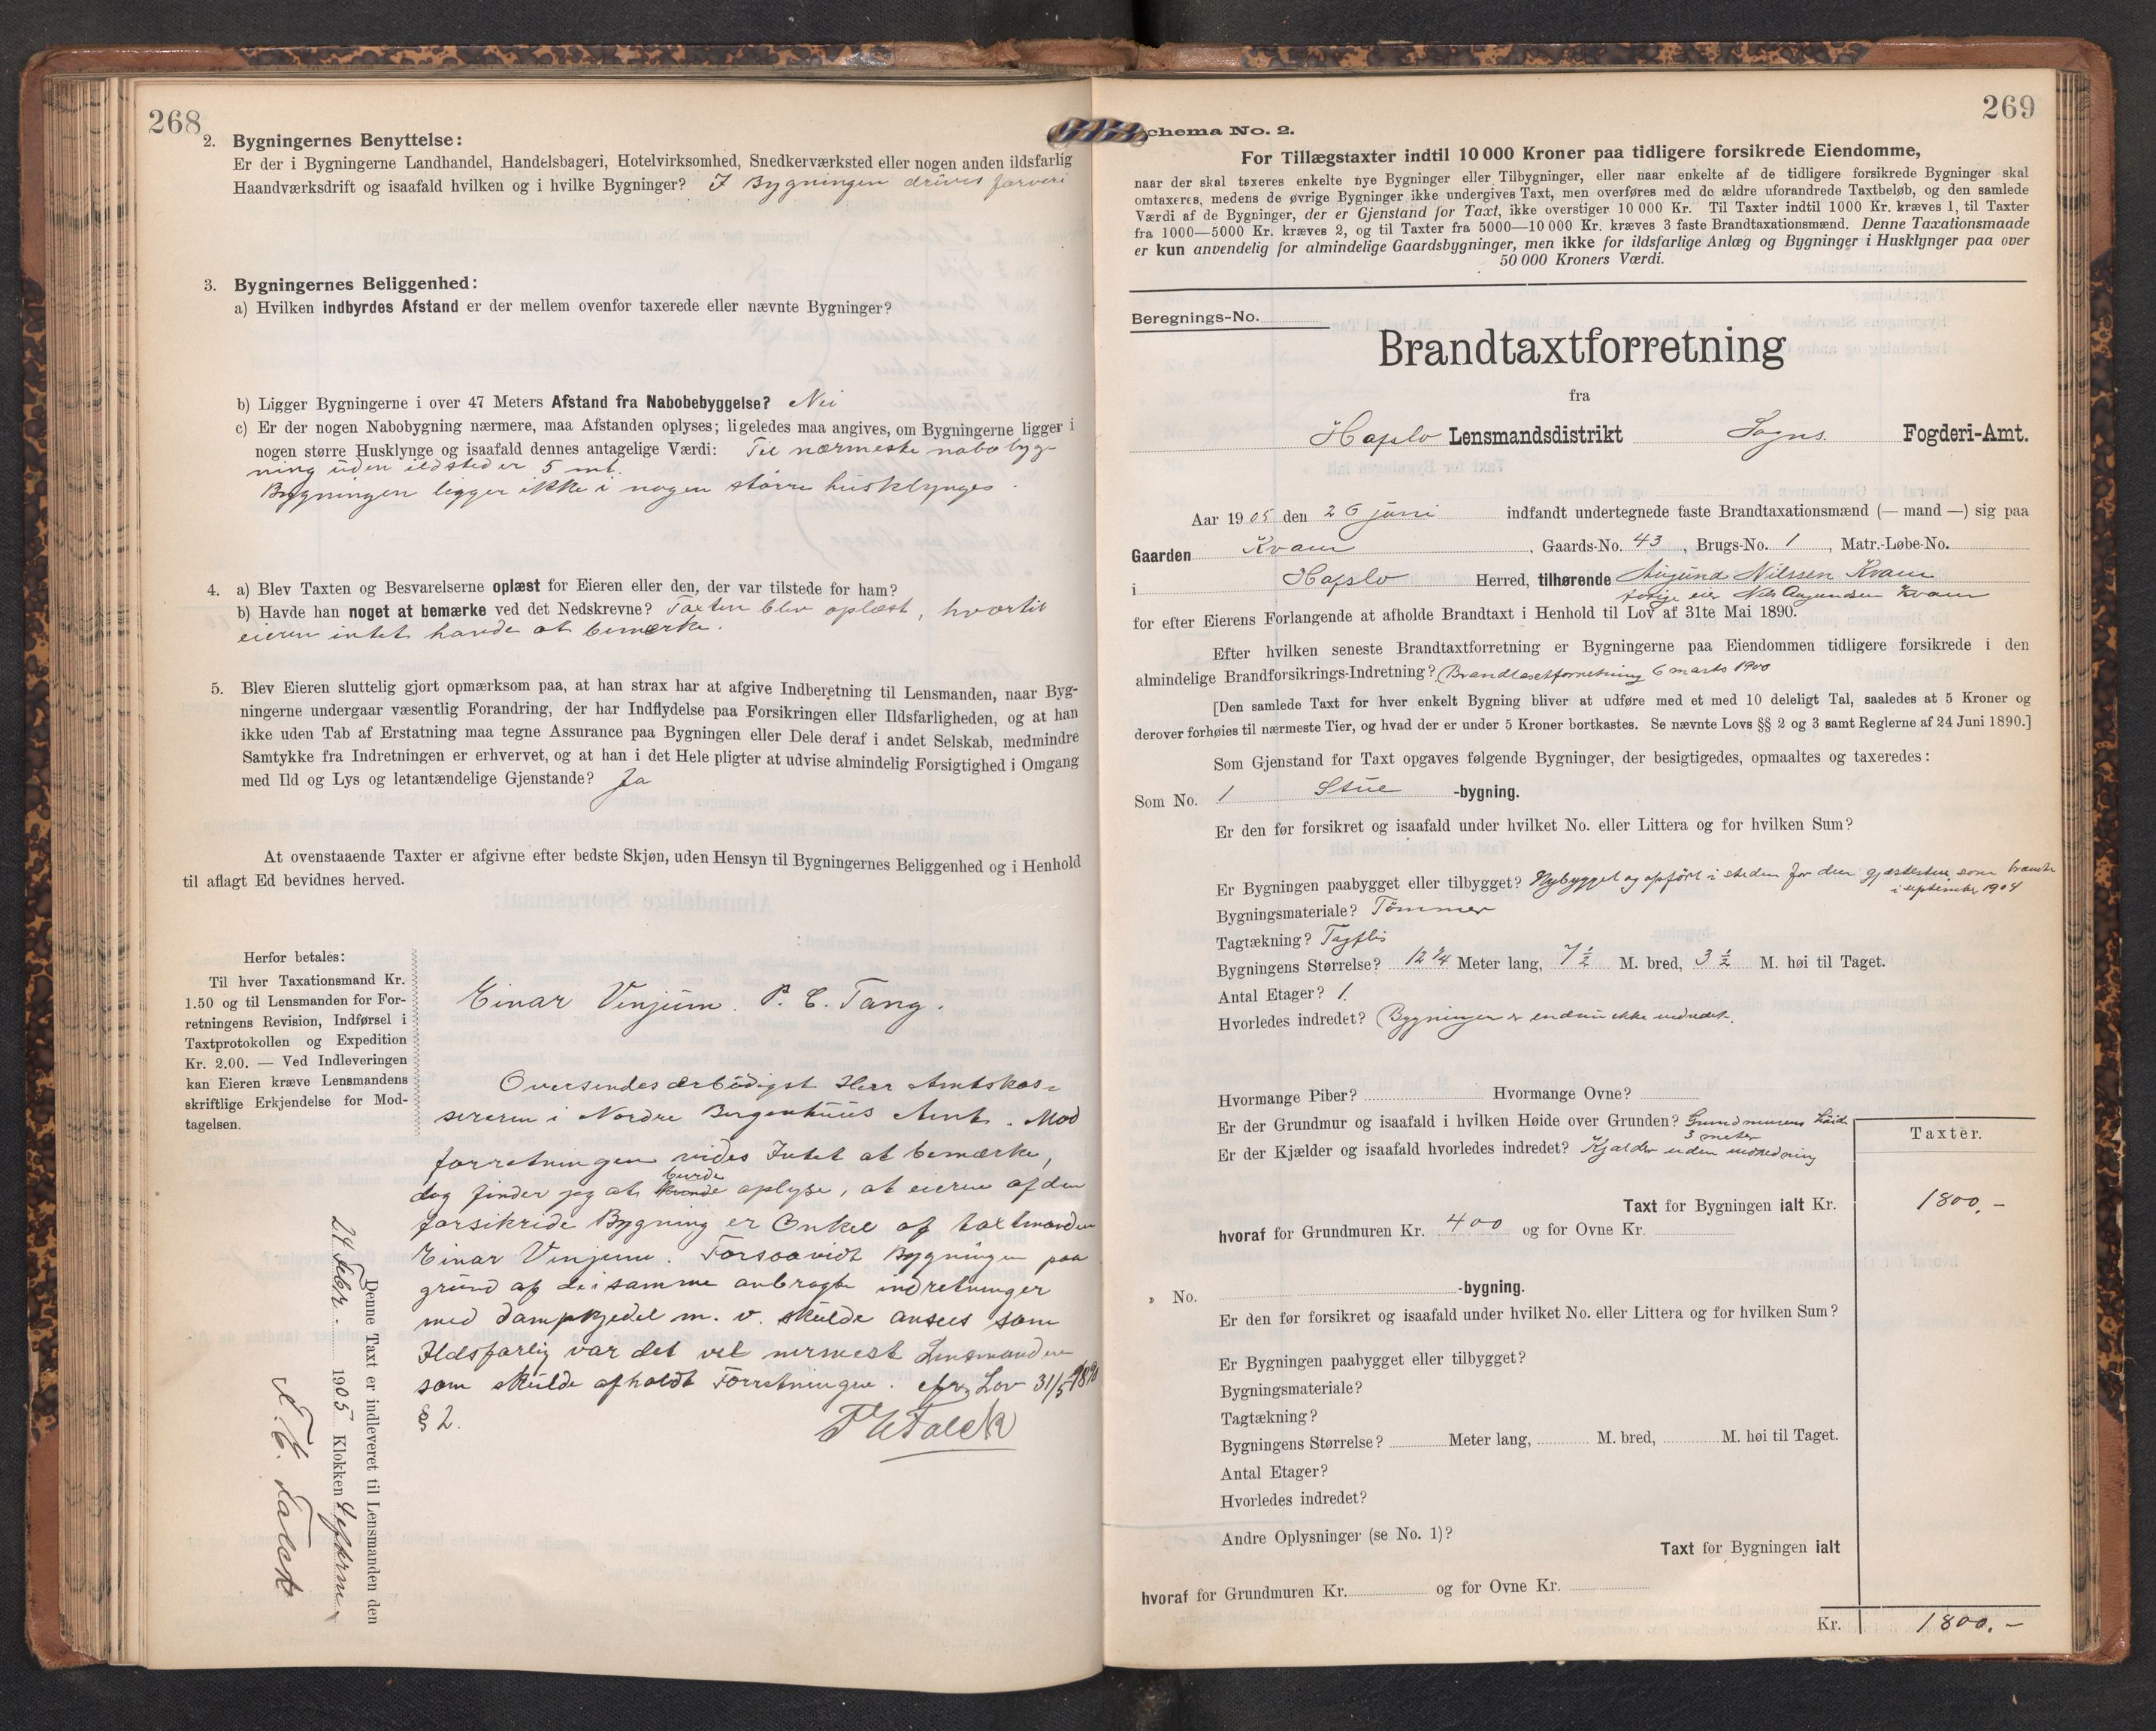 268
2. Bygningernes Benyttelse:
Er der i Bygningerne Landhandel, Handelsbageri, Hotelvirksomhed, Snedkerværksted eller nogen anden ildsfarlig
Haandværksdrift og isaafald hvilken og i hvilke Bygninger? I Bygningen drives farveri
3. Bygningernes Beliggenhed:
a) Hvilken indbyrdes Afstand er der mellem ovenfor taxerede eller nævnte Bygninger?
b) Ligger Bygningerne i over 47 Meters Afstand fra Nabobebyggelse? Nei
c) Er der nogen Nabobygning nærmere, maa Afstanden oplyses; ligeledes maa angives, om Bygningerne ligger i
nogen større Husklynge og isaafald dennes antagelige Værdi: Til nærmeste nabobyg-
ning uden ildsted er 5 mt.
Bygningen ligger ikke i nogen større husklynges.
4. a) Blev Taxten og Besvarelserne oplæst for Eieren eller den, der var tilstede for ham?
b) Havde han noget at bemærke ved det Nedskrevne? Taxten blev oplæst, hvortil
eieren intet havde at bemærke.
5. Blev Eieren sluttelig gjort opmærksom paa, at han strax har at afgive Indberetning til Lensmanden, naar Byg-
ningerne undergaar væsentlig Forandring, der har Indflydelse paa Forsikringen eller Ildsfarligheden, og at han
ikke uden Tab af Erstatning maa tegne Assurance paa Bygningen eller Dele deraf i andet Selskab, medmindre
Samtykke fra Indretningen er erhvervet, og at han i det Hele pligter at udvise almindelig Forsigtighed i Omgang
med Ild og Lys og letantændelige Gjenstande? Ja
At ovenstaaende Taxter er afgivne efter bedste Skjøn, uden Hensyn til Bygningernes Beliggenhed og i Henhold
til aflagt Ed bevidnes herved.
Herfor betales:
Til hver Taxationsmand Kr.
1.50 og til Lensmanden for For-
retningens Revision, Indførsel i
Taxtprotokollen og Expedition
Kr. 2.00. — Ved Indleveringen
kan Eieren kræve Lensmandens
skriftlige Erkjendelse for Mod-
tagelsen.
Einar Vinjum. P. C. Tang.
Oversendes ærbødigst Herr Amtskas-
sereren i Nordre Bergenhuus Amt. Mod
forretningen vides Intet at bemærke,
dog finder jeg at burde oplyse, at eieren af den
forsikrede Bygning er Onkel af taxtmanden
Einar Vinjum. Forsaavidt Bygningen paa
grund af de i samme anbragte indretninger
med Dampkjedel m. v. skulde ansees som
Ildsfarlig var det vel nærmest Lensmanden
som skulde afholdt Forretningen. cfr. Lov 31/5 1890
§ 2.
T E Falck
Denne Taxt er indleveret til Lensmanden den
24 Febr. 1905 Klokken
T. E. Falck
269
Schema No. 2.
For Tillægstaxter indtil 10 000 Kroner paa tidligere forsikrede Eiendomme,
naar der skal taxeres enkelte nye Bygninger eller Tilbygninger, eller naar enkelte af de tidligere forsikrede Bygninger skal
omtaxeres, medens de øvrige Bygninger ikke undergives Taxt, men overføres med de ældre uforandrede Taxtbeløb, og den samlede
Værdi af de Bygninger, der er Gjenstand for Taxt, ikke overstiger 10 000 Kr. Til Taxter indtil 1000 Kr. kræves 1, til Taxter
fra 1000—5000 Kr. kræves 2, og til Taxter fra 5000—10 000 Kr. kræves 3 faste Brandtaxationsmænd. Denne Taxationsmaade
er kun anvendelig for almindelige Gaardsbygninger, men ikke for ildsfarlige Anlæg og Bygninger i Husklynger paa over
50 000 Kroners Værdi.
Beregnings-No.
Brandtaxtforretning
fra
Hafslo Lensmandsdistrikt Sogns Fogderi-Amt.
Aar 1905 den 26 juni indfandt undertegnede faste Brandtaxationsmænd (— mand —) sig paa
Gaarden Kvam, Gaards-No. 43, Brugs-No. 1, Matr.-Løbe-No.
i Hafslo Herred, tilhørende Augund Nilssen Kvam
forige eier Nils Augundsen Kvam
for efter Eierens Forlangende at afholde Brandtaxt i Henhold til Lov af 31te Mai 1890.
Efter hvilken seneste Brandtaxtforretning er Bygningerne paa Eiendommen tidligere forsikrede i den
almindelige Brandforsikrings-Indretning? Brandtaxtforretning 6 marts 1900
[Den samlede Taxt for hver enkelt Bygning bliver at udføre med et med 10 deleligt Tal, saaledes at 5 Kroner og
derover forhøies til nærmeste Tier, og hvad der er under 5 Kroner bortkastes. Se nævnte Lovs §§ 2 og 3 samt Reglerne af 24 Juni 1890.]
Som Gjenstand for Taxt opgaves følgende Bygninger, der besigtigedes, opmaaltes og taxeredes:
Som No. 1 Stue -bygning.
Er den før forsikret og isaafald under hvilket No. eller Littera og for hvilken Sum?
Er Bygningen paabygget eller tilbygget? Nybygget og opført i steden for den gjæstestue, som brændte
i september 1904
Bygningsmateriale? Tømmer
Tagtækning? Tagflis
Bygningens Størrelse? 12 1/4 Meter lang, 7 1/2 M. bred, 3 1/2 M. høi til Taget.
Antal Etager? 1.
Hvorledes indredet? Bygningen er endnu ikke indredet.
Hvormange Piber? Hvormange Ovne?
Er der Grundmur og isaafald i hvilken Høide over Grunden? Grundmurens høide
3 meter
Er der Kjælder og isaafald hvorledes indredet? Kjælder uden indredning
Taxter.
Taxt for Bygningen ialt Kr. 1800,-
hvoraf for Grundmuren Kr. 400 og for Ovne Kr.
» No. -bygning.
Er den før forsikret og isaafald under hvilket No. eller Littera og for hvilken Sum?
Er Bygningen paabygget eller tilbygget?
Bygningsmateriale?
Tagtækning?
Bygningens Størrelse? Meter lang, M. bred, M. høi til Taget.
Antal Etager?
Hvorledes indredet?
Andre Oplysninger (se No. 1)?
Taxt for Bygningen ialt
hvoraf for Grundmuren Kr. og for Ovne Kr.
Kr. 1800.-